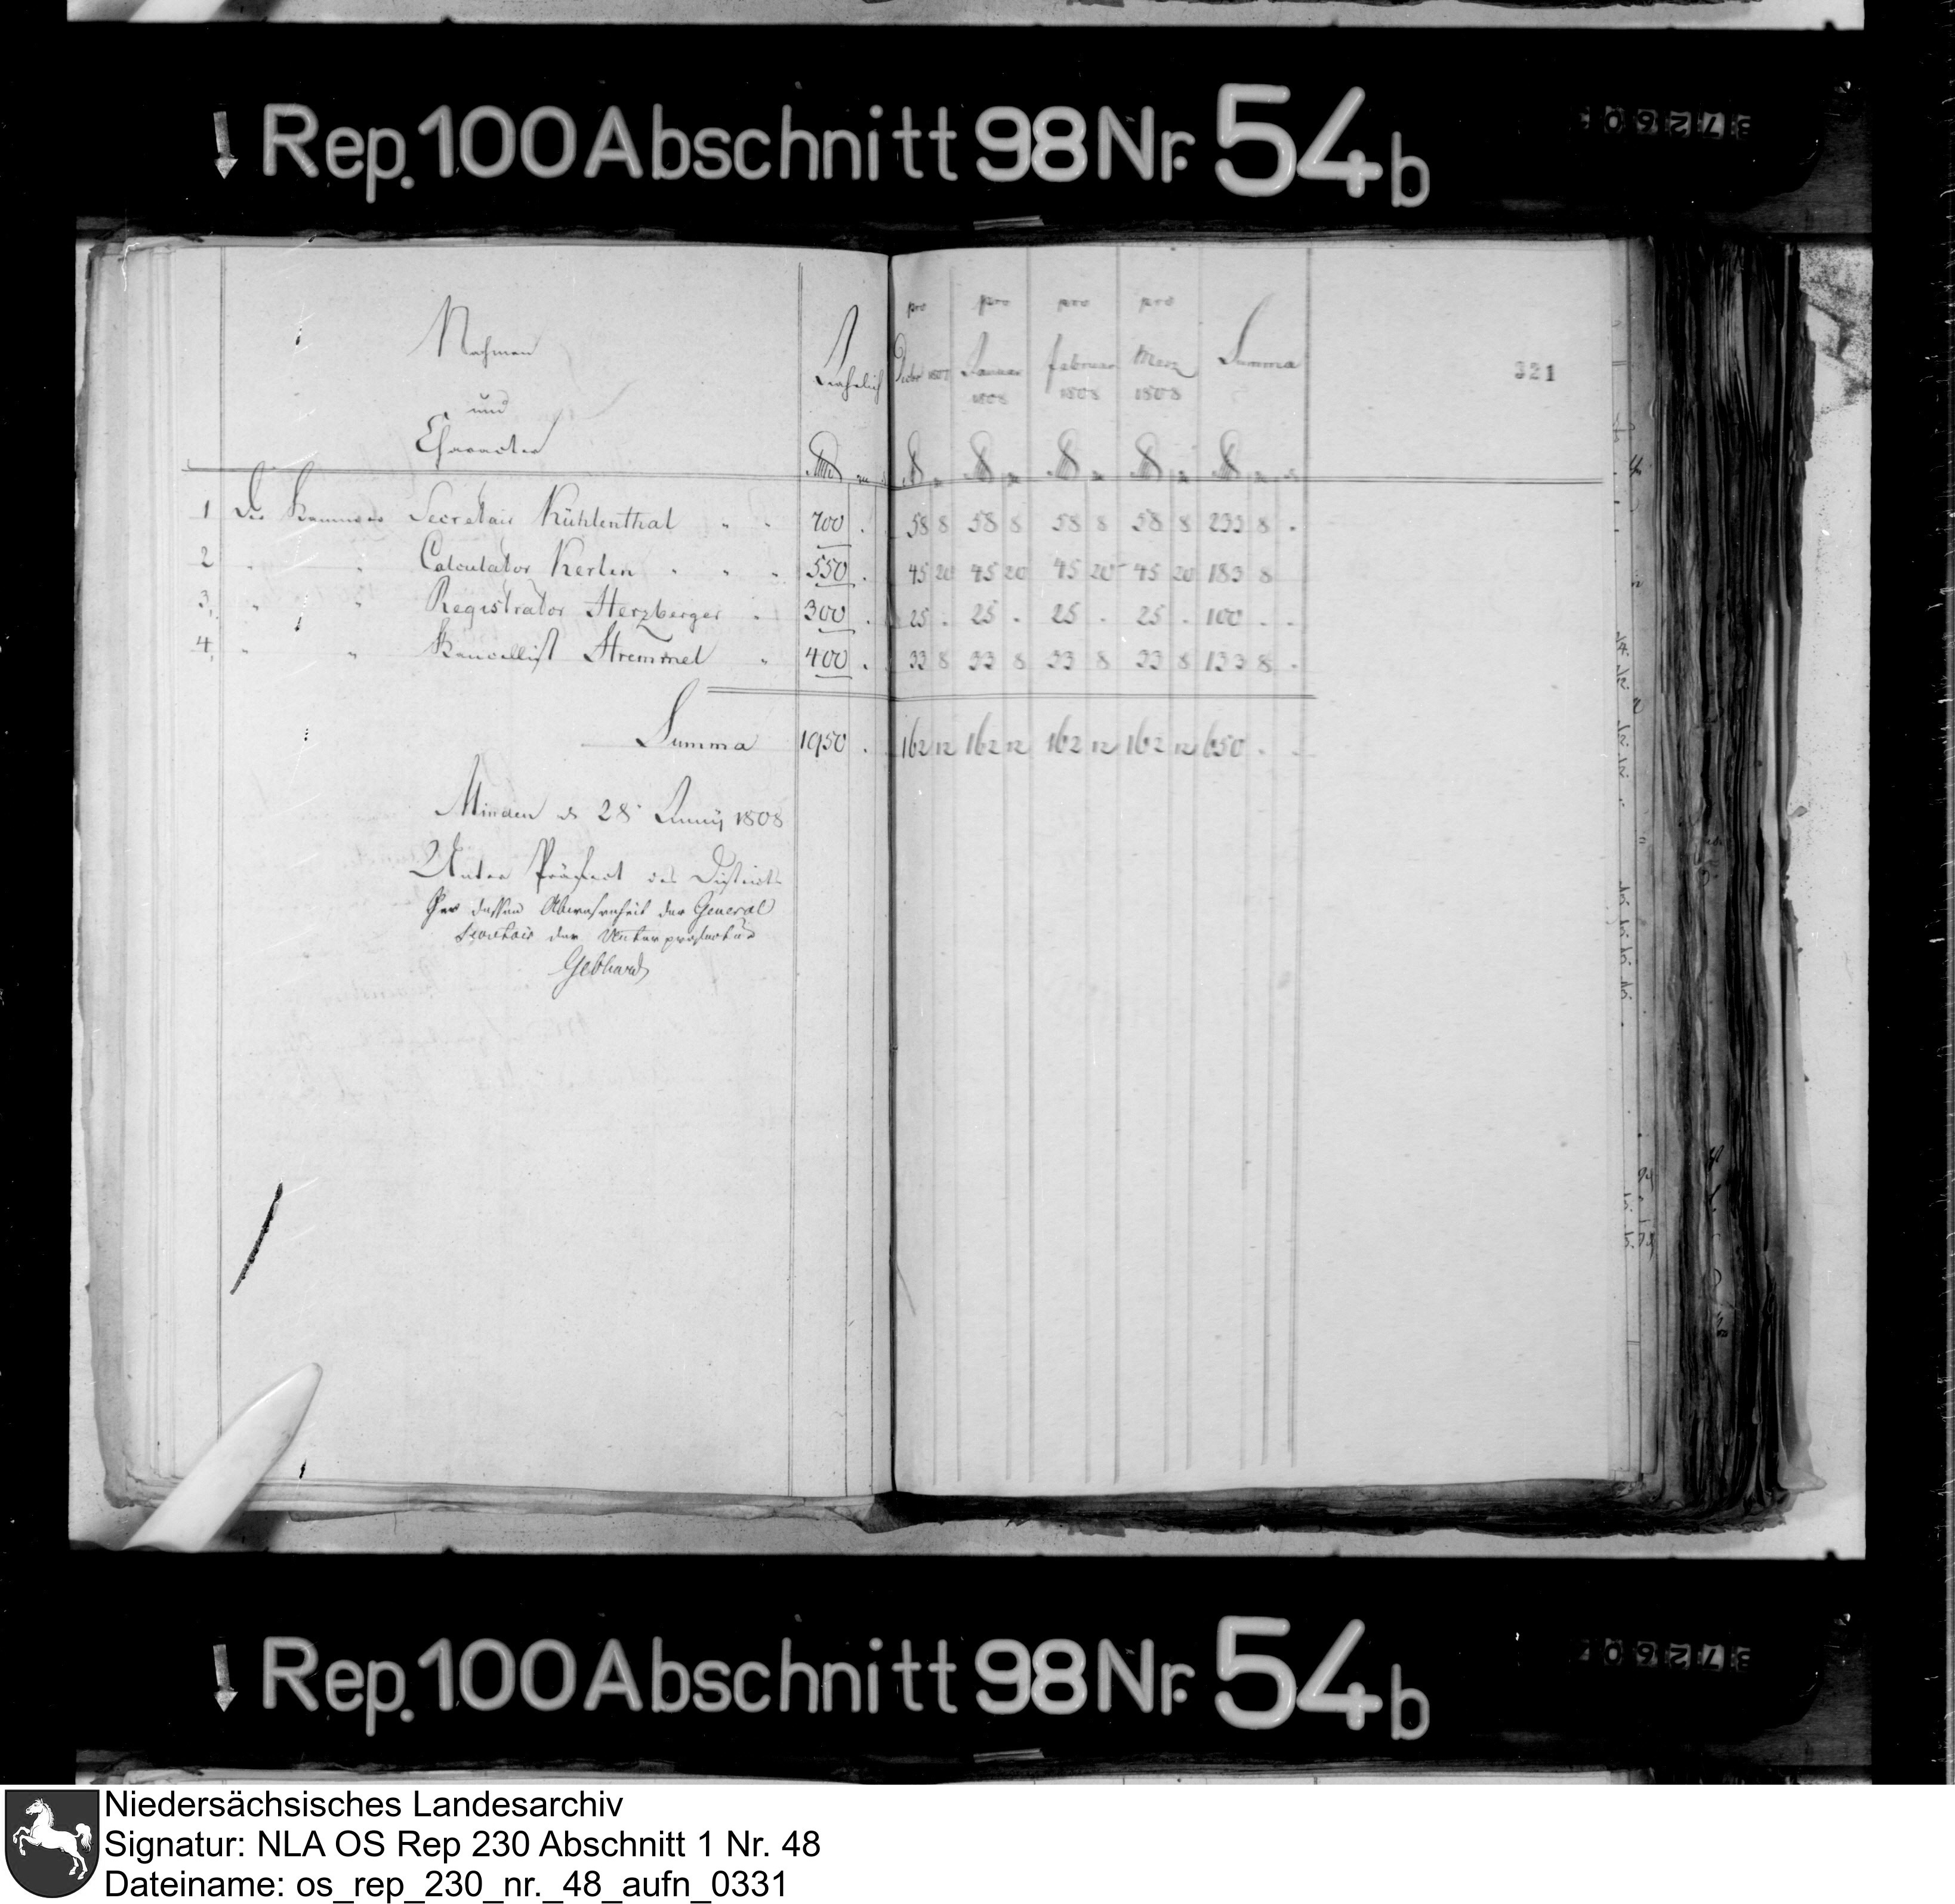 Rep. 100 Abschnitt 98 Nr. 54b
Nahmen
und
Character
Jaehrlich
pro
Decbr 1807
pro
Januar
1808
pro
Februar
1808
pro
Merz
1808
Summa
321
1 Der Kammer Secretair Kühlenthal " " 700 . 58 8 58 8 58 8 58 8 233 8 .
2 " " Calculator Kerlen " " " 550 . 45 20 45 20 45 20 45 20 183 8
3. " " Registrator Herzberger " 300 . 25 . 25 . 25 . 25 . 100 . .
4. " " Kancellist Stremmel " 400 . 33 8 33 8 33 8 33 8 133 8 .
Summa 1950 . 162 12 162 12 162 12 162 12 650 . .
Minden d 28 Junij 1808
Unter Präfect des Districts
Per dessen Abwesenheit der General
Secretair der Unterpräfectur
Gebhard
Rep. 100 Abschnitt 98 Nr. 54b
Niedersächsisches Landesarchiv
Signatur: NLA OS Rep 230 Abschnitt 1 Nr. 48
Dateiname: os_rep_230_nr._48_aufn_0331